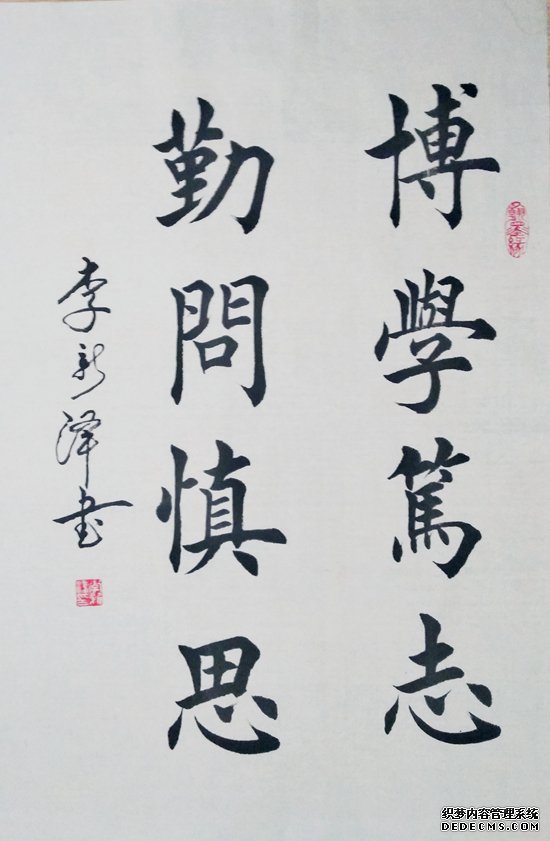 博學篤志
勤問慎思
李新泽书
织梦内容管理系统
DEDECMS.COM